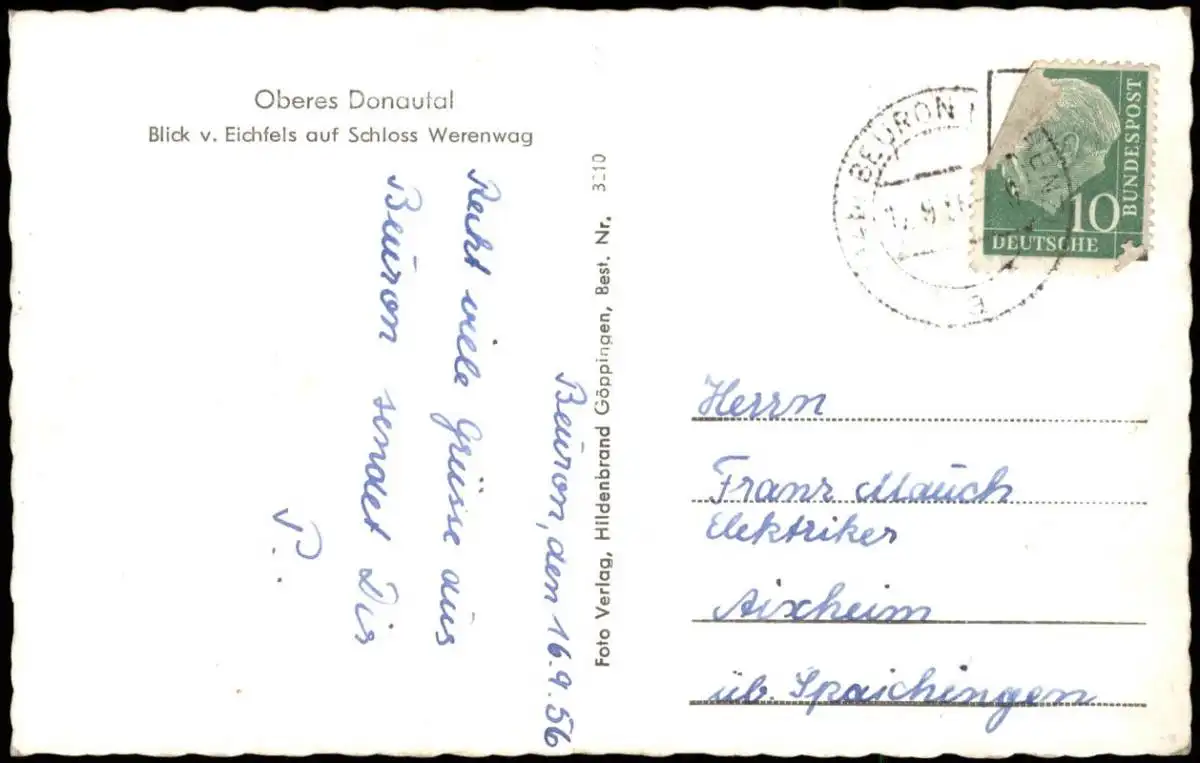 Oberes Donautal
Blick v. Eichfels auf Schloss Werenwag
Beuron, den 16.9.56
Recht viele Grüsse aus
Beuron sendet Dir
P.
Foto Verlag, Hildenbrand Göppingen, Best. Nr.
BEURON
DEUTSCHE
BUNDESPOST
10
Herrn
Franz Mauch
Elektriker
Aixheim
üb. Spaichingen